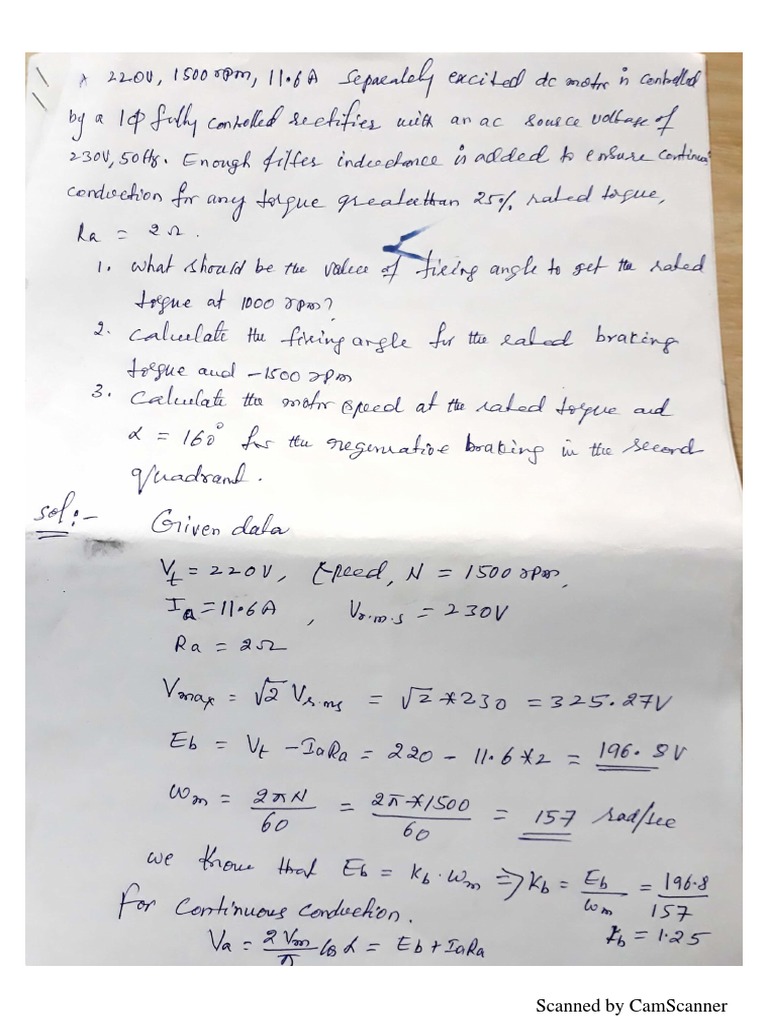 A 220V, 1500 rpm, 11.6A Separately excited dc motor is controlled
by a 1ϕ fully controlled rectifier with an ac source voltage of
230V, 50Hz. Enough filter inductance is added to ensure continu
conduction for any torque greater than 25% rated torque,
Ra = 2Ω.
1. what should be the value of firing angle to get the rated
torque at 1000 rpm?
2. calculate the firing angle for the rated braking
torque and -1500 rpm
3. calculate the motor speed at the rated torque and
α = 160° for the regenerative braking in the second
quadrant.
Sol:- Given data
Vt = 220V, speed, N = 1500 rpm,
Ia = 11.6A, Vr.m.s = 230V
Ra = 2Ω
Vmax = √2 Vr.ms = √2 * 230 = 325.27V
Eb = Vt - IaRa = 220 - 11.6*2 = 196.8V
ωm = 2πN/60 = 2π*1500/60 = 157 rad/sec
we know that Eb = Kb.ωm ⇒ Kb = Eb/ωm = 196.8/157
for continuous conduction. Kb = 1.25
Va = 2Vm/π cos α = Eb + IaRa
Scanned by CamScanner